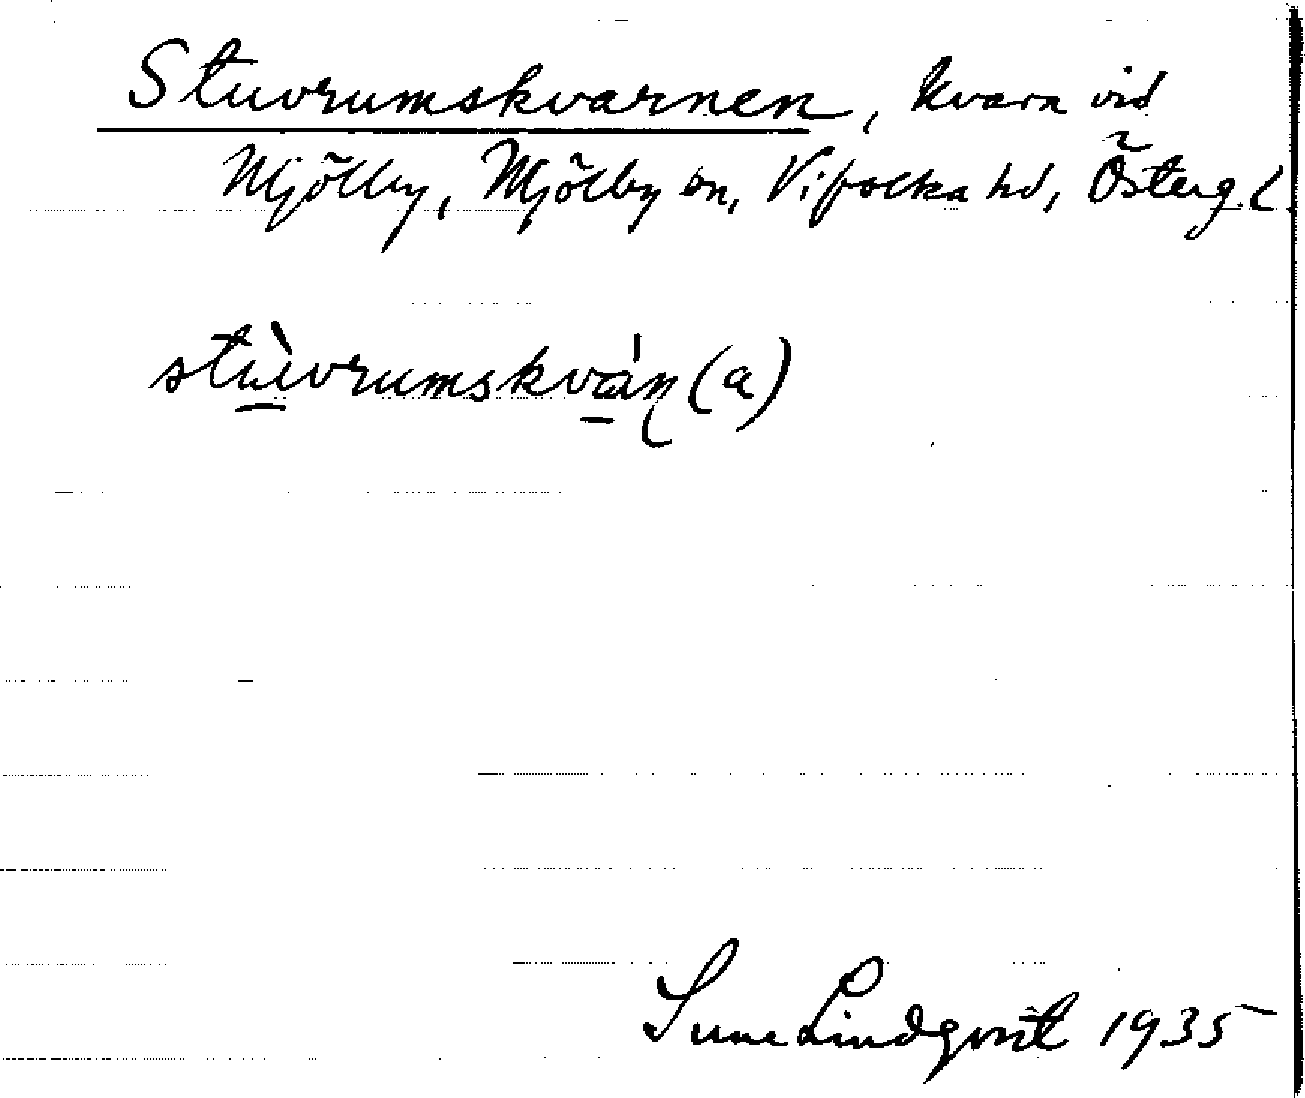 Stuvrumskvarnen, kvarn vid
Mjölby, Mjölby sn, Vifolka hd, Österg.l.
stù̲vrumskvá̲ɳ(a)
Sune Lindqvist 1935